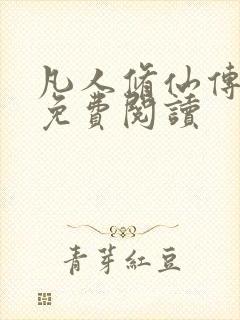 凡人脩仙傳
免費閱讀
青芽紅豆